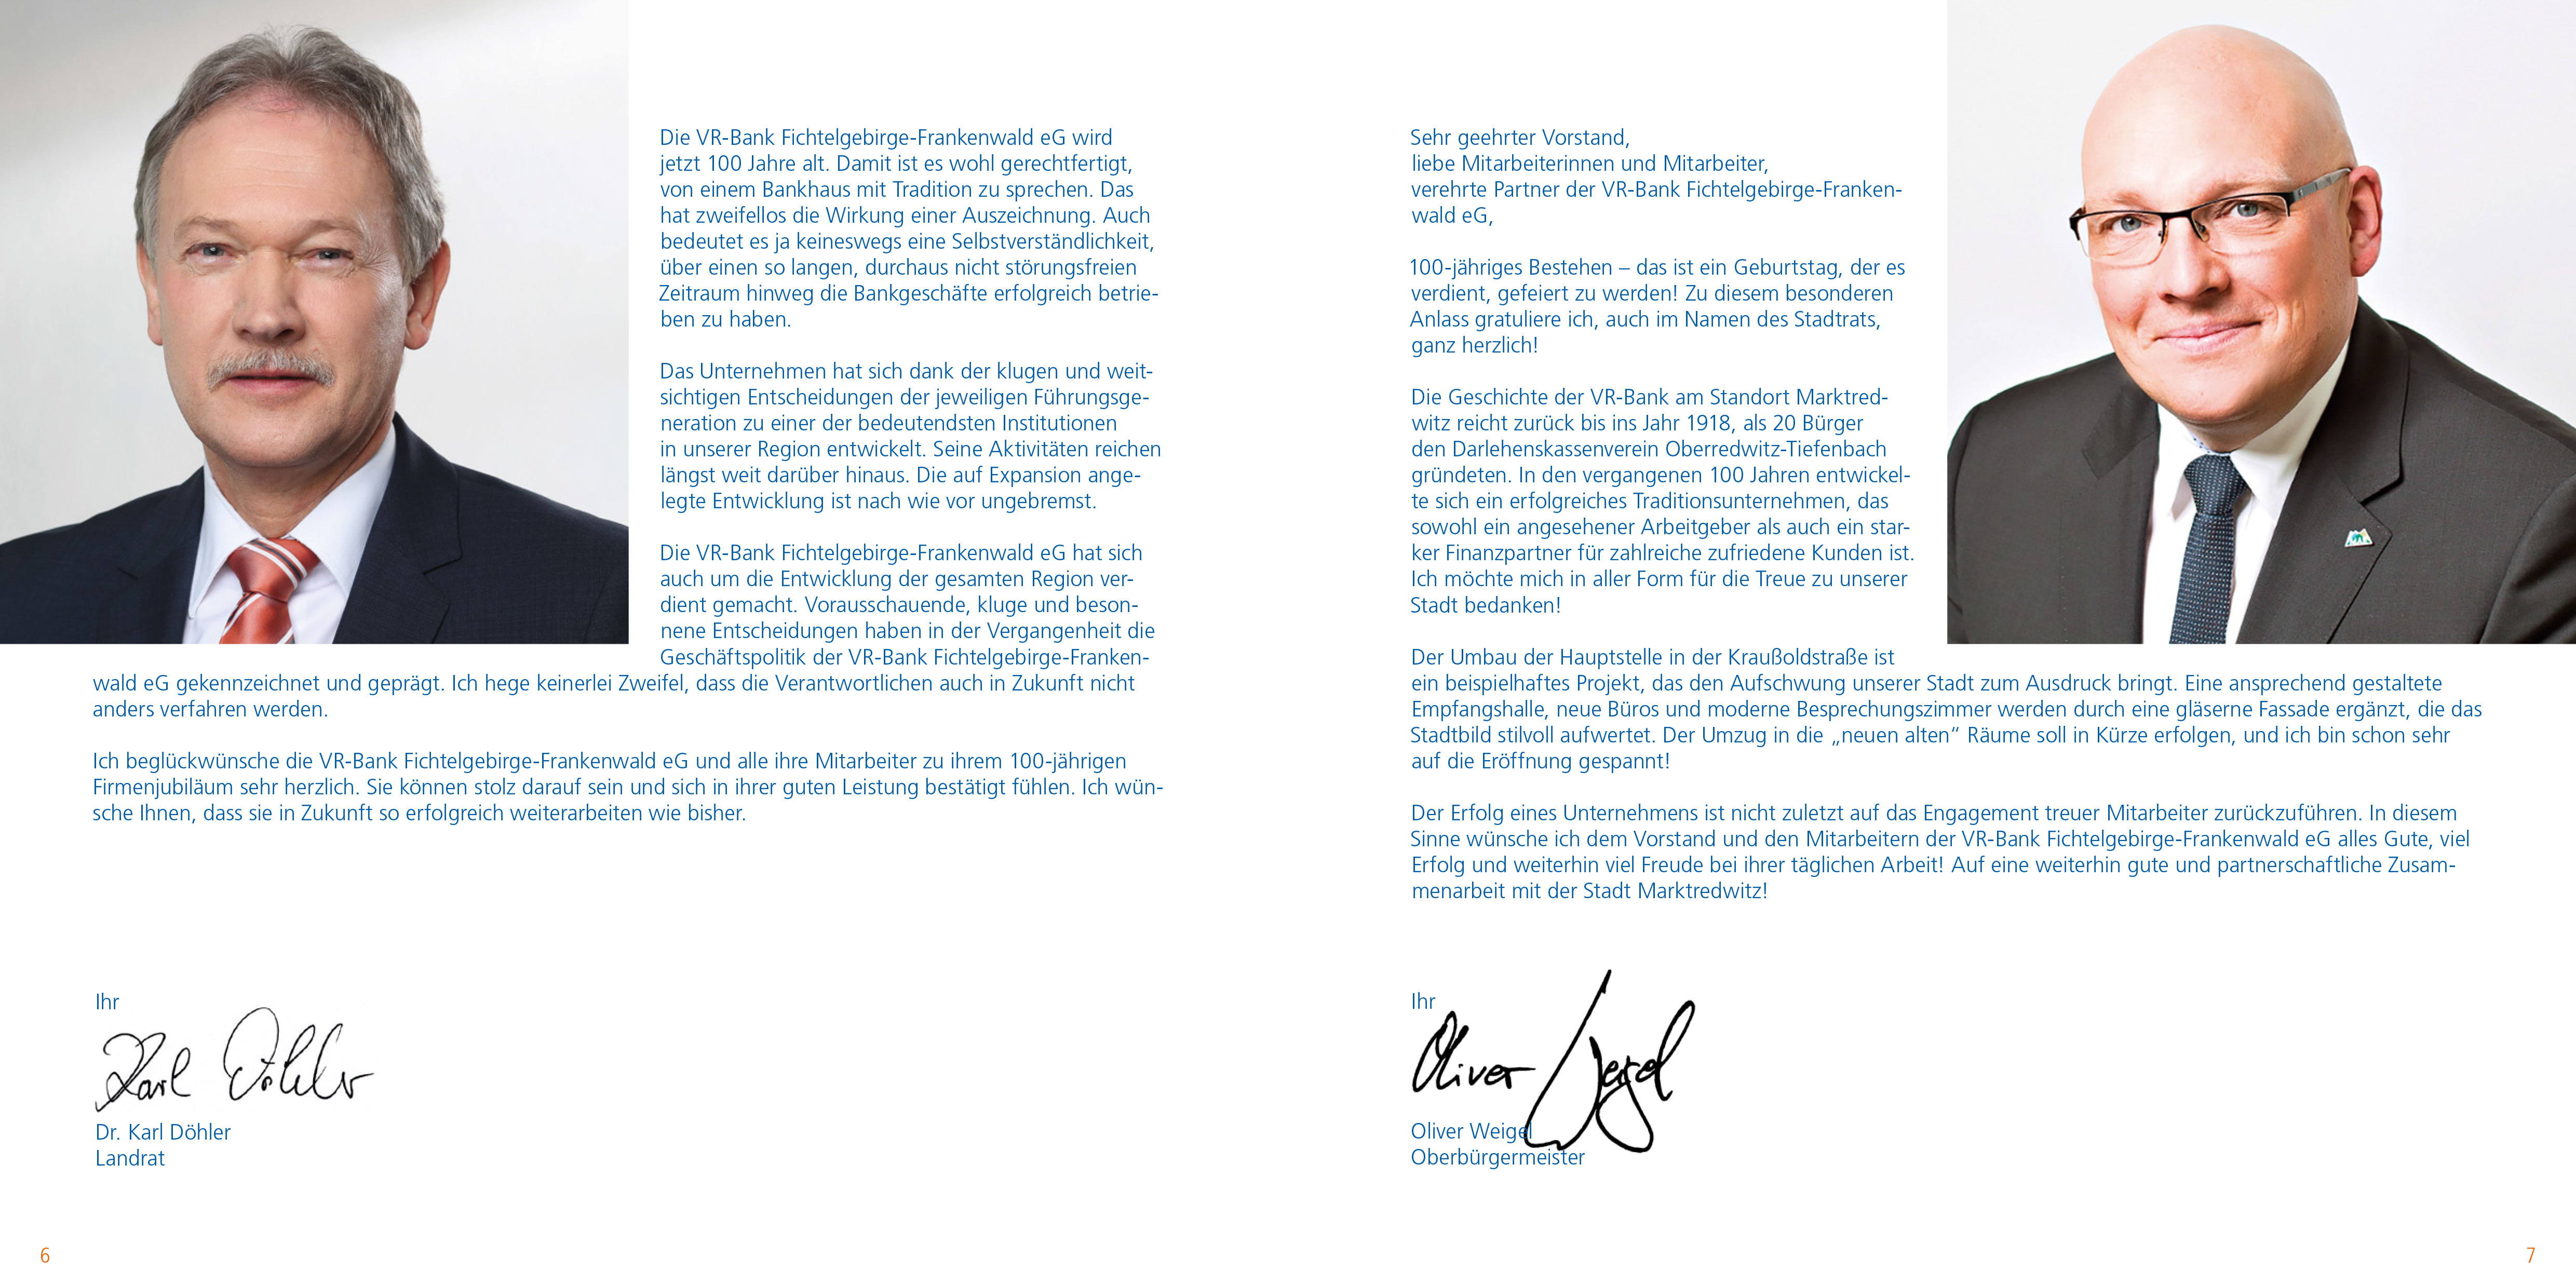 Die VR-Bank Fichtelgebirge-Frankenwald eG wird
jetzt 100 Jahre alt. Damit ist es wohl gerechtfertigt,
von einem Bankhaus mit Tradition zu sprechen. Das
hat zweifellos die Wirkung einer Auszeichnung. Auch
bedeutet es ja keineswegs eine Selbstverständlichkeit,
über einen so langen, durchaus nicht störungsfreien
Zeitraum hinweg die Bankgeschäfte erfolgreich betrie-
ben zu haben.
Das Unternehmen hat sich dank der klugen und weit-
sichtigen Entscheidungen der jeweiligen Führungsge-
neration zu einer der bedeutendsten Institutionen
in unserer Region entwickelt. Seine Aktivitäten reichen
längst weit darüber hinaus. Die auf Expansion ange-
legte Entwicklung ist nach wie vor ungebremst.
Die VR-Bank Fichtelgebirge-Frankenwald eG hat sich
auch um die Entwicklung der gesamten Region ver-
dient gemacht. Vorausschauende, kluge und beson-
nene Entscheidungen haben in der Vergangenheit die
Geschäftspolitik der VR-Bank Fichtelgebirge-Franken-
wald eG gekennzeichnet und geprägt. Ich hege keinerlei Zweifel, dass die Verantwortlichen auch in Zukunft nicht
anders verfahren werden.
Ich beglückwünsche die VR-Bank Fichtelgebirge-Frankenwald eG und alle ihre Mitarbeiter zu ihrem 100-jährigen
Firmenjubiläum sehr herzlich. Sie können stolz darauf sein und sich in ihrer guten Leistung bestätigt fühlen. Ich wün-
sche Ihnen, dass sie in Zukunft so erfolgreich weiterarbeiten wie bisher.
Ihr
Karl Döhler
Dr. Karl Döhler
Landrat
6
Sehr geehrter Vorstand,
liebe Mitarbeiterinnen und Mitarbeiter,
verehrte Partner der VR-Bank Fichtelgebirge-Franken-
wald eG,
100-jähriges Bestehen – das ist ein Geburtstag, der es
verdient, gefeiert zu werden! Zu diesem besonderen
Anlass gratuliere ich, auch im Namen des Stadtrats,
ganz herzlich!
Die Geschichte der VR-Bank am Standort Marktred-
witz reicht zurück bis ins Jahr 1918, als 20 Bürger
den Darlehenskassenverein Oberredwitz-Tiefenbach
gründeten. In den vergangenen 100 Jahren entwickel-
te sich ein erfolgreiches Traditionsunternehmen, das
sowohl ein angesehener Arbeitgeber als auch ein star-
ker Finanzpartner für zahlreiche zufriedene Kunden ist.
Ich möchte mich in aller Form für die Treue zu unserer
Stadt bedanken!
Der Umbau der Hauptstelle in der Kraußoldstraße ist
ein beispielhaftes Projekt, das den Aufschwung unserer Stadt zum Ausdruck bringt. Eine ansprechend gestaltete
Empfangshalle, neue Büros und moderne Besprechungszimmer werden durch eine gläserne Fassade ergänzt, die das
Stadtbild stilvoll aufwertet. Der Umzug in die „neuen alten“ Räume soll in Kürze erfolgen, und ich bin schon sehr
auf die Eröffnung gespannt!
Der Erfolg eines Unternehmens ist nicht zuletzt auf das Engagement treuer Mitarbeiter zurückzuführen. In diesem
Sinne wünsche ich dem Vorstand und den Mitarbeitern der VR-Bank Fichtelgebirge-Frankenwald eG alles Gute, viel
Erfolg und weiterhin viel Freude bei ihrer täglichen Arbeit! Auf eine weiterhin gute und partnerschaftliche Zusam-
menarbeit mit der Stadt Marktredwitz!
Ihr
Oliver Weigel
Oliver Weigel
Oberbürgermeister
7